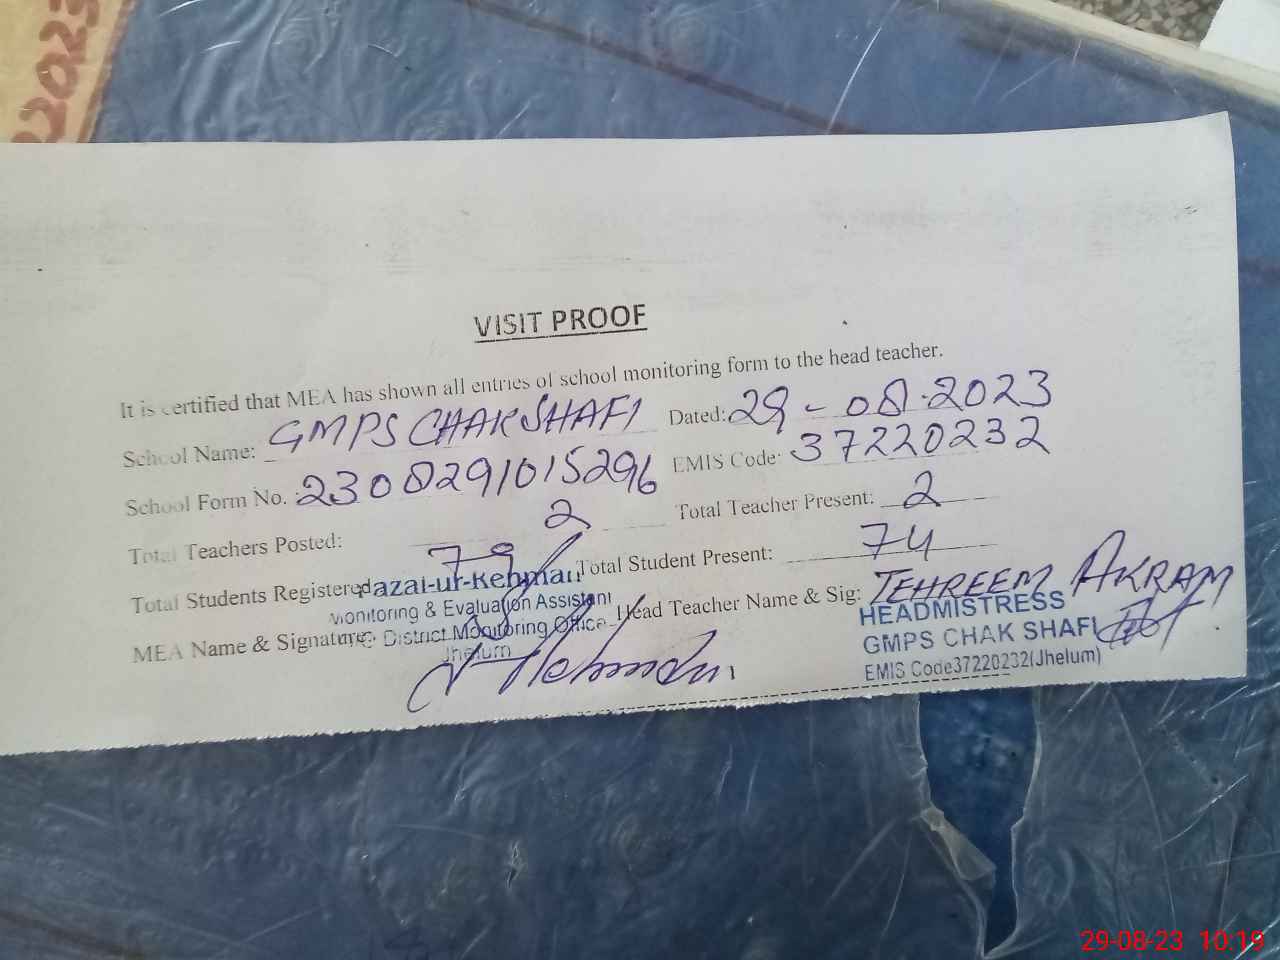 22023
VISIT PROOF
It is certified that MEA has shown all entries of school monitoring form to the head teacher.
School Name: GMPS CHAK SHAFI Dated: 29-08-2023
School Form No. 2308291015296 EMIS Code: 37220232
Total Teachers Posted: 2 Total Teacher Present: 2
Total Students Registered 79 Total Student Present: 74
MEA Name & Signature: Head Teacher Name & Sig: TEHREEM AKRAM
azal-ur-Rehman
Monitoring & Evaluation Assistant
District Monitoring Office
Jhelum
HEADMISTRESS
GMPS CHAK SHAFI
EMIS Code37220232(Jhelum)
29-08-23 10:19